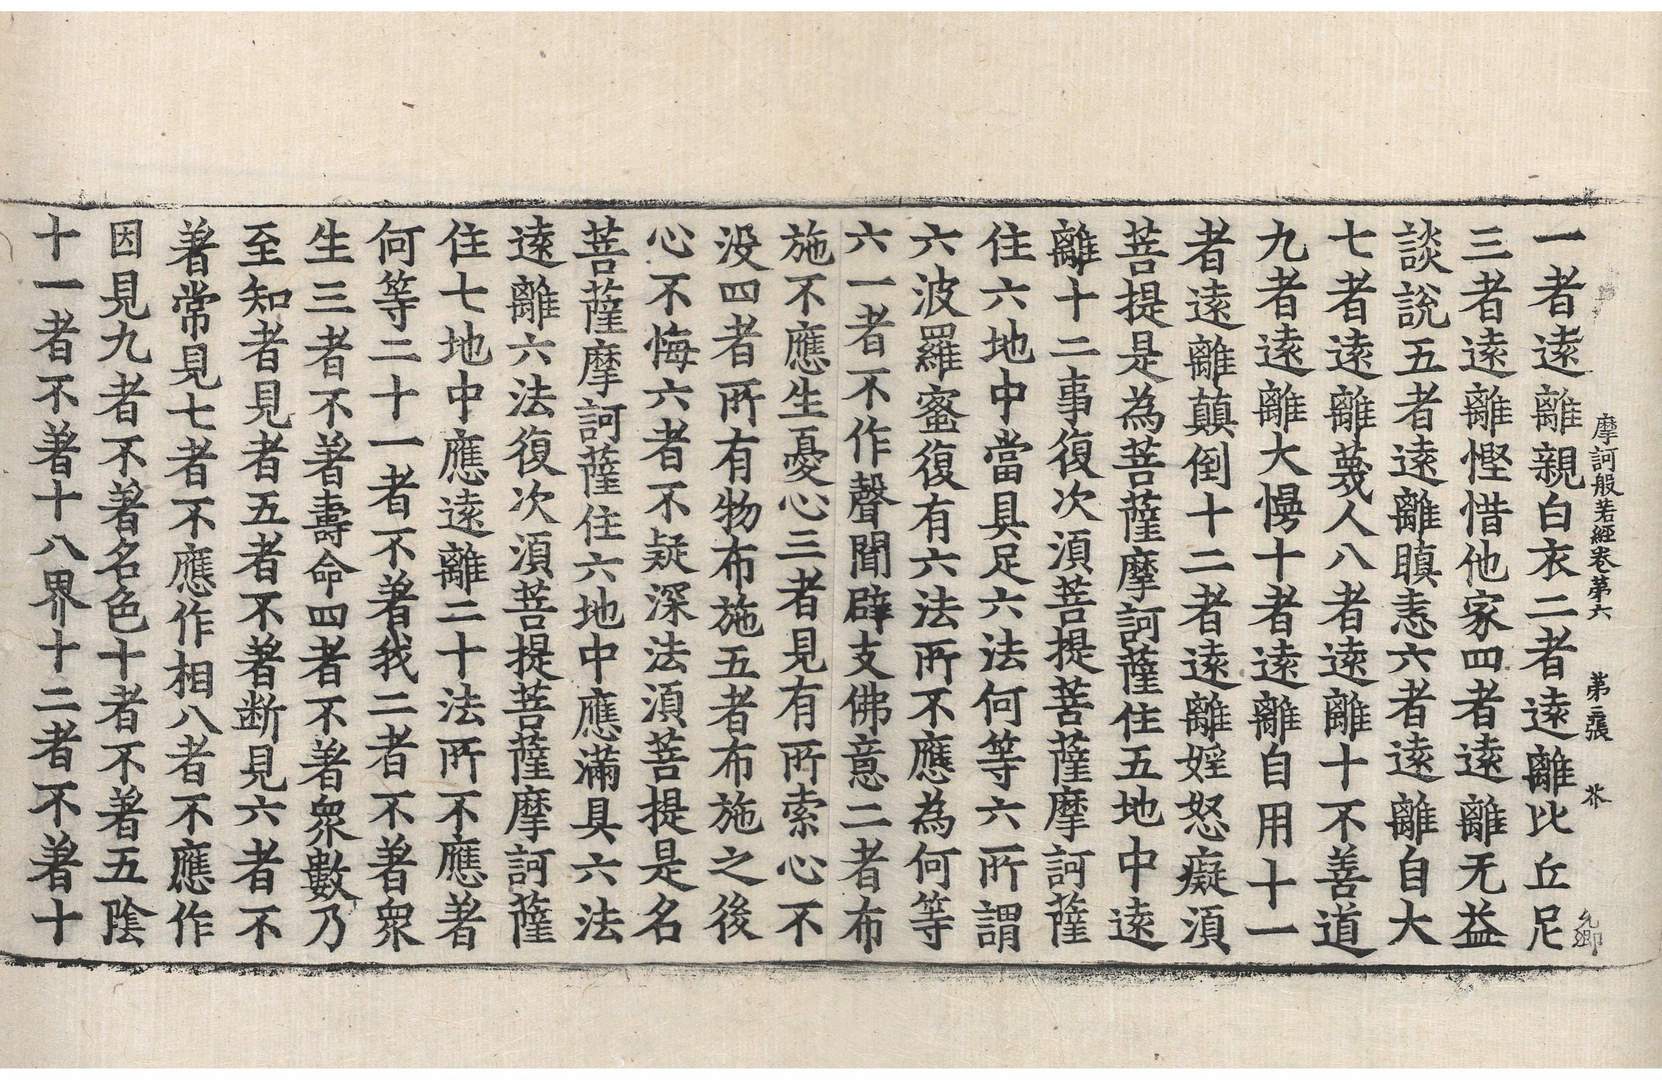 摩訶般若經卷第六　第二張　芥　允卿
一者遠離親白衣二者遠離比丘尼
三者遠離慳惜他家四者遠離无益
談說五者遠離瞋恚六者遠離自大
七者遠離蔑人八者遠離十不善道
九者遠離大慢十者遠離自用十一
者遠離顛倒十二者遠離婬怒癡湏
菩提是為菩薩摩訶薩住五地中遠
離十二事復次湏菩提菩薩摩訶薩
住六地中當具足六法何等六所謂
六波羅蜜復有六法所不應為何等
六一者不作聲聞辟支佛意二者布
施不應生憂心三者見有所索心不
没四者所有物布施五者布施之後
心不悔六者不疑深法湏菩提是名
菩薩摩訶薩住六地中應滿具六法
遠離六法復次湏菩提菩薩摩訶薩
住七地中應遠離二十法所不應著
何等二十一者不著我二者不著衆
生三者不著壽命四者不著衆數乃
至知者見者五者不著断見六者不
著常見七者不應作相八者不應作
因見九者不著名色十者不著五陰
十一者不著十八界十二者不著十